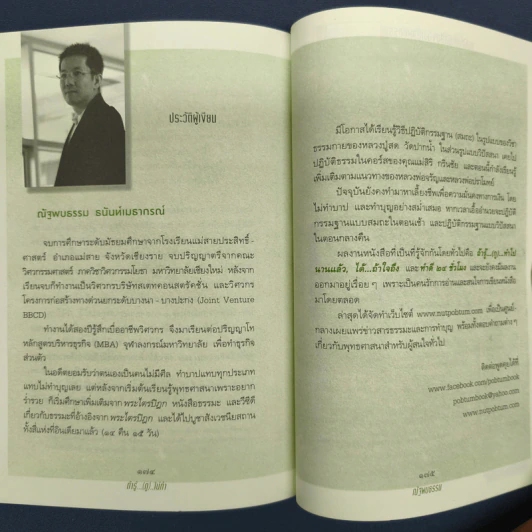 ประวัติผู้เขียน
ณัฐพบธรรม ธนันท์เมธากรณ์
จบการศึกษาระดับมัธยมศึกษาจากโรงเรียนแม่สายประสิทธิ์-
ศาสตร์ อำเภอแม่สาย จังหวัดเชียงราย จบปริญญาตรีจากคณะ
วิศวกรรมศาสตร์ ภาควิชาวิศวกรรมโยธา มหาวิทยาลัยเชียงใหม่ หลังจาก
เรียนจบก็ทำงานเป็นวิศวกรบริษัทเตทคอนสตรัคชั่น และวิศวกร
โครงการก่อสร้างทางด่วนยกระดับบางนา - บางปะกง (Joint Venture
BBCD)
ทำงานได้สองปีรู้สึกเบื่ออาชีพวิศวกร จึงมาเรียนต่อปริญญาโท
หลักสูตรบริหารธุรกิจ (MBA) จุฬาลงกรณ์มหาวิทยาลัย เพื่อทำธุรกิจ
ส่วนตัว
ในอดีตยอมรับว่าตนเองเป็นคนไม่มีศีล ทำบาปแทบทุกประเภท
แทบไม่ทำบุญเลย แต่หลังจากเริ่มต้นเรียนรู้พุทธศาสนาเพราะอยาก
ร่ำรวย ก็เริ่มศึกษาเพิ่มเติมจาก พระไตรปิฎก หนังสือธรรมะ และวีซีดี
เกี่ยวกับธรรมะที่อ้างอิงจาก พระไตรปิฎก และได้ไปบูชาสังเวชนียสถาน
ทั้งสี่แห่งที่อินเดียมาแล้ว (๑๔ คืน ๑๕ วัน)
๑๗๔
ถ้ารู้...(กู)
มีโอกาสได้เรียนรู้วิธีปฏิบัติกรรมฐาน (สมถะ) ในรูปแบบของวิชา
ธรรมกายของหลวงปู่สด วัดปากน้ำ ในส่วนรูปแบบวิปัสสนา เคยไป
ปฏิบัติธรรมในคอร์สของคุณแม่สิริ กรินชัย และตอนนี้กำลังเรียนรู้
เพิ่มเติมตามแนวทางของหลวงพ่อจรัญและหลวงพ่อปราโมทย์
ปัจจุบันยังคงทำมาหาเลี้ยงชีพเพื่อความมั่นคงทางการเงิน โดย
ไม่ทำบาป และทำบุญอย่างสม่ำเสมอ หากเวลาเอื้ออำนวยจะปฏิบัติ
กรรมฐานแบบสมถะในตอนเช้า และปฏิบัติกรรมฐานแบบวิปัสสนา
ในตอนกลางคืน
ผลงานหนังสือที่เป็นที่รู้จักกันโดยทั่วไปคือ ถ้ารู้...(กู)...ทำไป
นานแล้ว, ได้...ถ้าใจถึง และ ทำดี ๒๔ ชั่วโมง และจะยังคงมีผลงาน
ออกมาอยู่เรื่อยๆ เพราะเป็นคนรักการอ่านและสนใจการเขียนหนังสือ
มาโดยตลอด
ล่าสุดได้จัดทำเว็บไซต์ www.nutpobtum.com เพื่อเป็นศูนย์-
กลางเผยแพร่ข่าวสารธรรมะและการทำบุญ พร้อมทั้งตอบคำถามต่างๆ
เกี่ยวกับพุทธศาสนาสำหรับผู้สนใจทั่วไป
ติดต่อพูดคุยได้ที่
www.facebook.com/pobtum
pobtumbook@yahoo.com
www.nutpobtum.com
๑๗๕
ณัฐพบธรรม